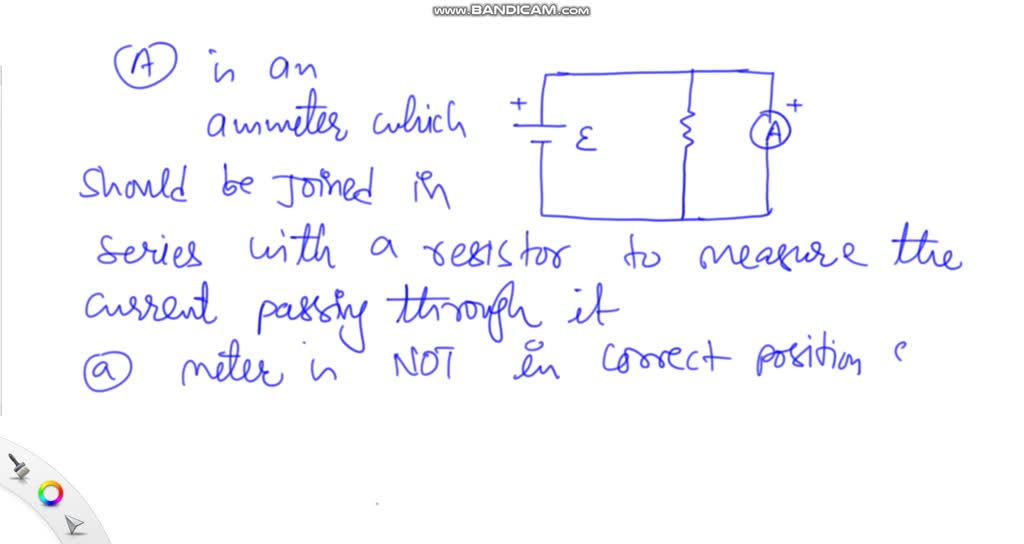 www.BANDICAM.com
(A) is an
ammeter which
should be Joined in
series with a resistor to measure the
current passing through it
(a) meter is NOT in correct position
+
ε
A
+